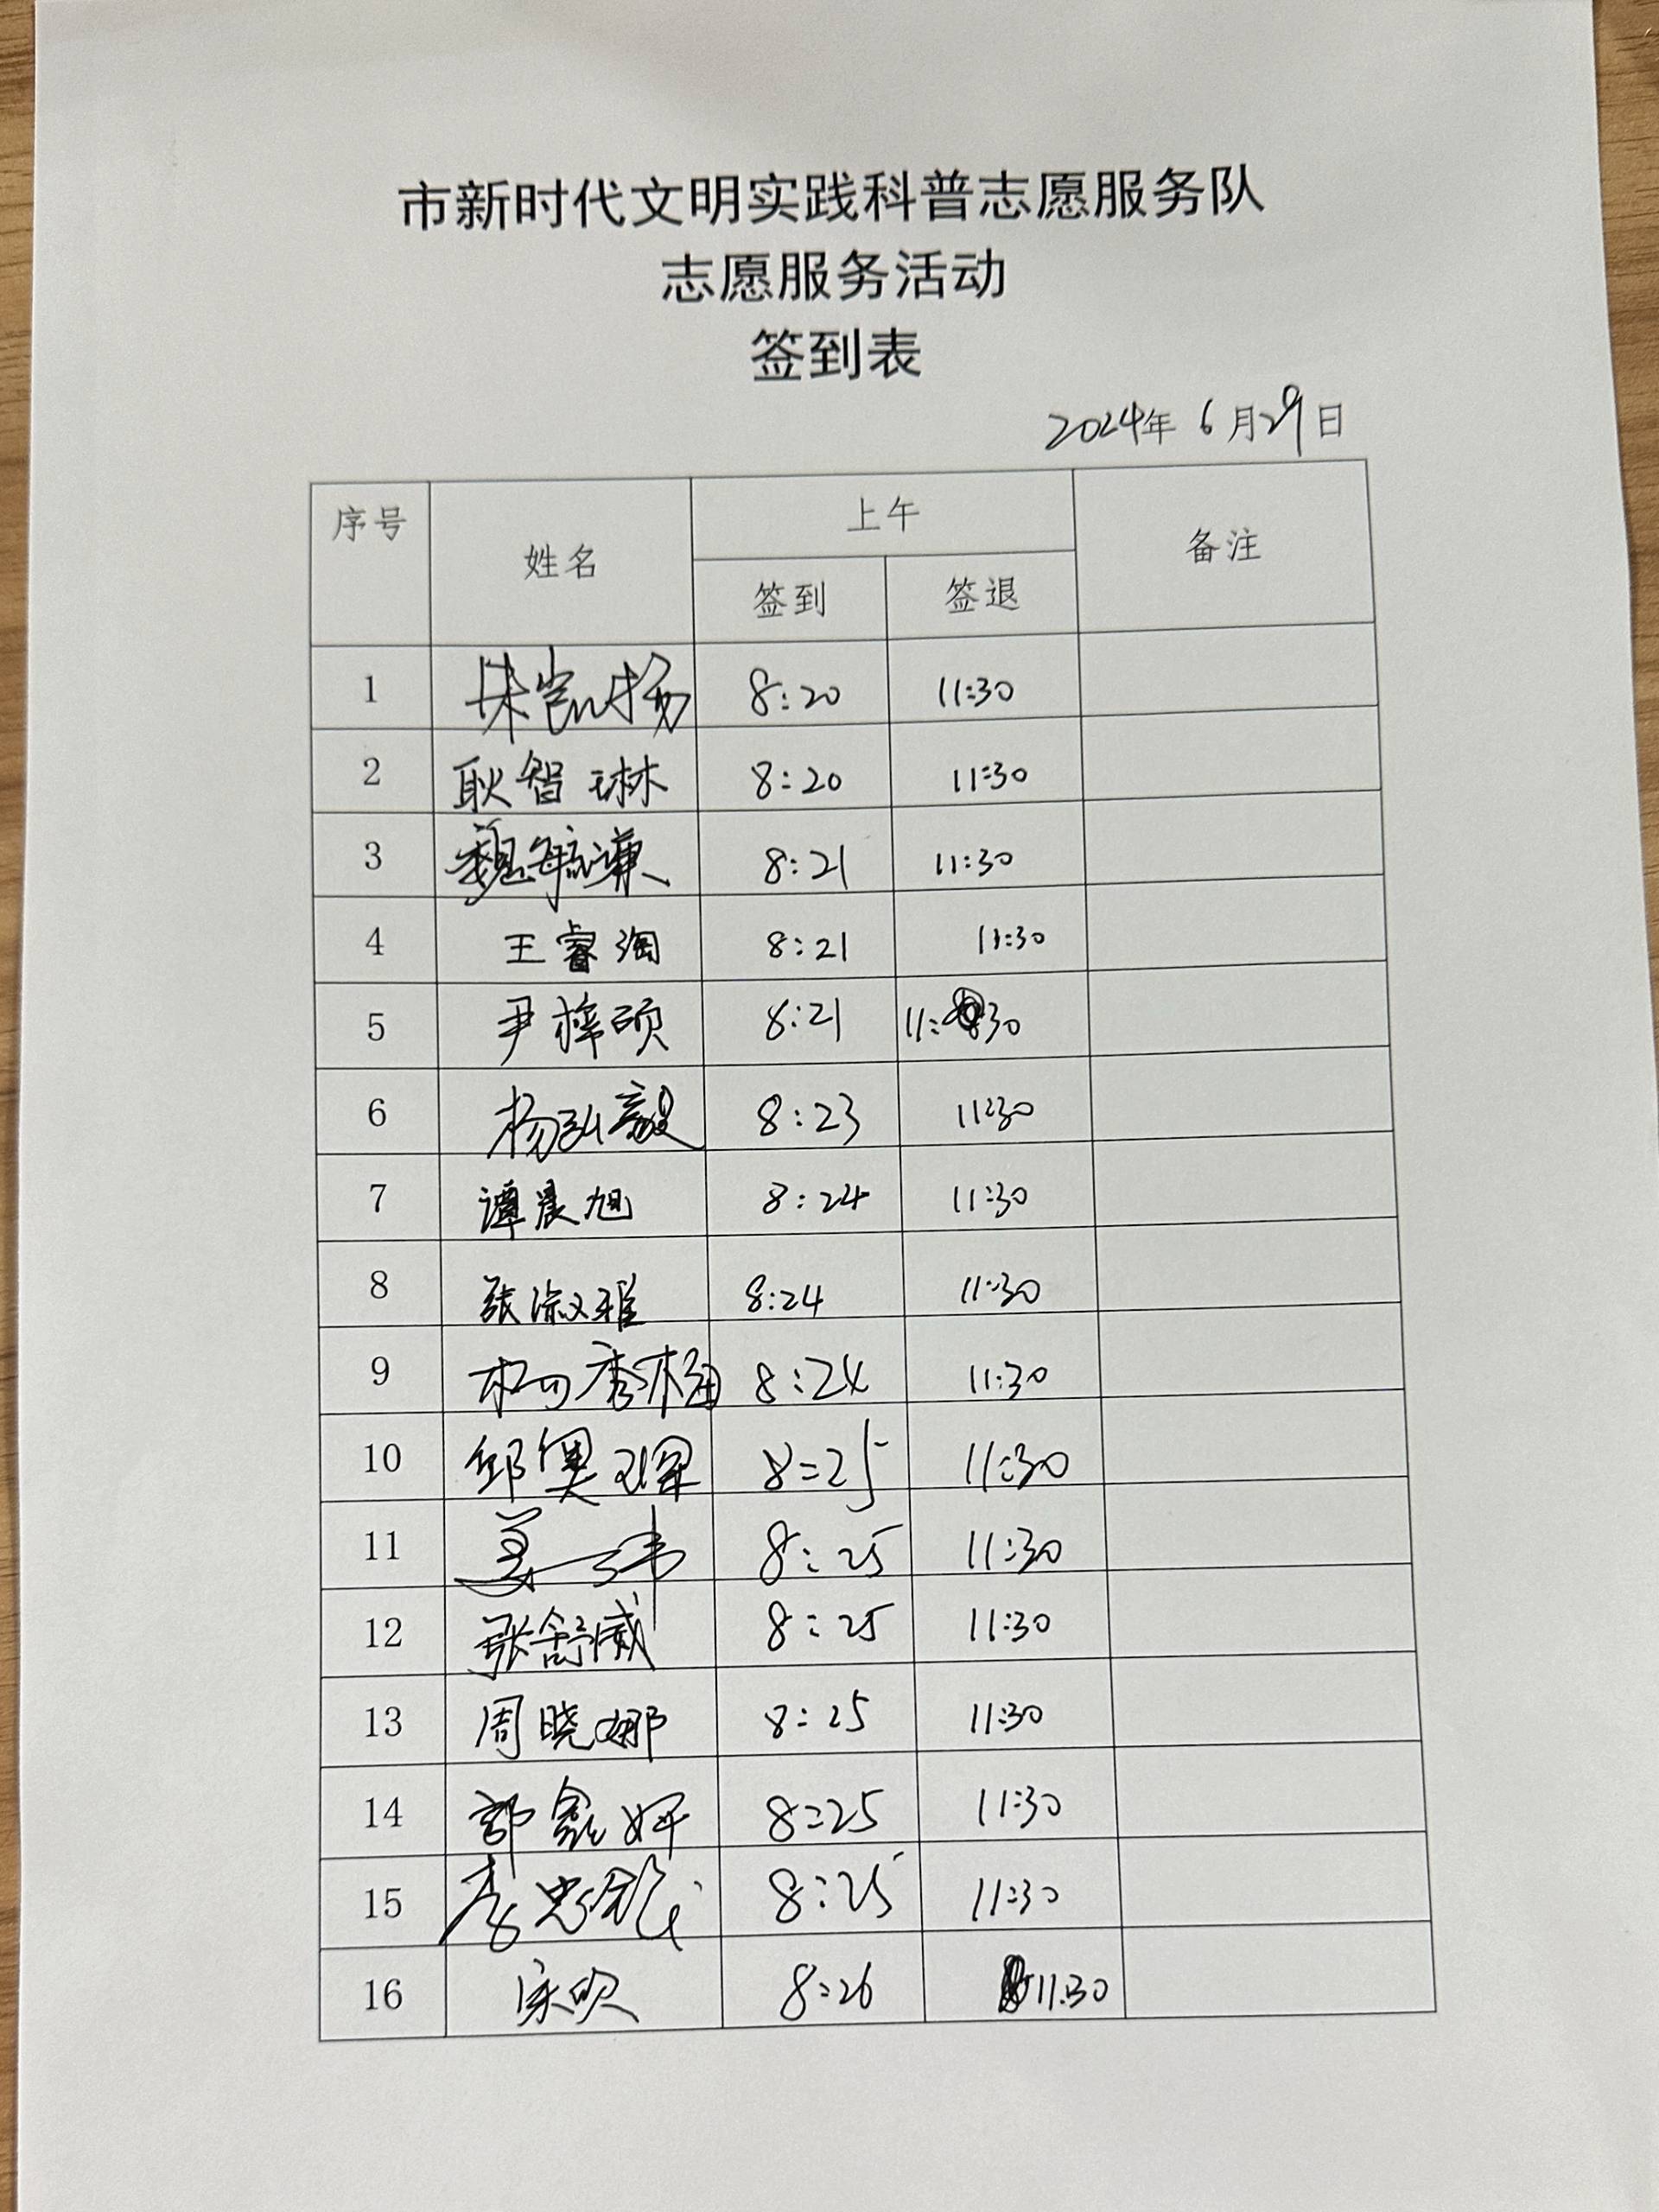 市新时代文明实践科普志愿服务队
志愿服务活动
签到表
2024年 6月29日
序号 姓名 上午 备注
签到 签退
1 朱凯扬 8:20 11:30
2 耿智琳 8:20 11:30
3 魏毓谦 8:21 11:30
4 王睿淘 8:21 11:30
5 尹梓硕 8:21 11:30
6 杨弘毅 8:23 11:30
7 谭晨旭 8:24 11:30
8 张淑雅 8:24 11:30
9 8:24 11:30
10 邱奥琛 8:25 11:30
11 姜一韦 8:25 11:30
12 张舒威 8:25 11:30
13 周晓娜 8:25 11:30
14 郭鑫妍 8:25 11:30
15 李忠 8:25 11:30
16 8:26 11:30